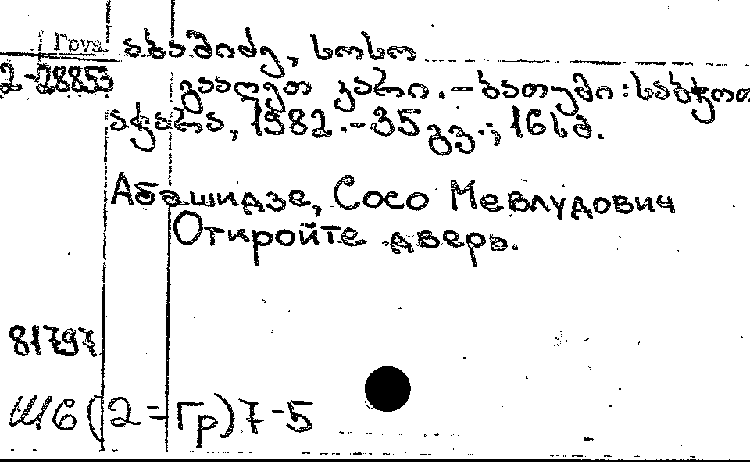 Груз. აბაშიძე, სოსო
2-28853 გააღეთ კარი. – ბათუმი : საბჭოთ
აჭარა, 1982. – 35 გვ.; 16 სმ.
Абашидзе, Сосо Мевлудович
Откройте дверь.
81797
Ш6(2=Гр)7-5